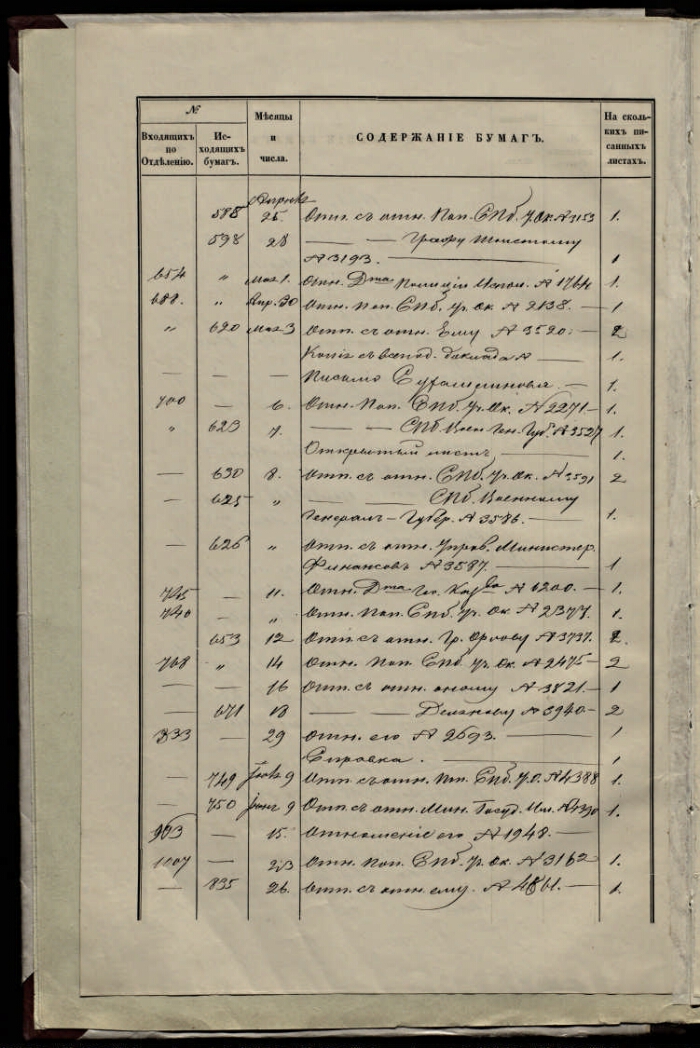 №
Входящихъ по Отдѣленію.
Исходящихъ бумагъ.
Мѣсяцы и числа.
СОДЕРЖАНІЕ БУМАГЪ.
На сколькихъ писанныхъ листахъ.
Апрѣля
588 25. Отп. съ отн. Поп. СПб. Уч. Ок. № 3153 1.
598 28 — — Графу Толстому
№ 3193. — 1
654 " Мая 1. Отн. Дта Полиціи Испол. № 1764 1.
688. " Апр. 30 Отн. Поп. СПб. Уч. Ок № 2138. — 1
" 620 Мая 3 Отп. съ отн. Ему № 3520. — 2
Копія съ всепод. доклада — 1.
— — — Письмо — 1.
700 — 6. Отн. Поп. СПб. Уч. Ок. № 2271 — 1.
" 623 7. — — СПб. Воен. Ген. Губ. № 3527 1.
Открытый листъ — 1.
— 630 8. Отп. съ отн. СПб. Уч. Ок. № 3591 2
— 625 " — — СПб. Военному
Генералъ-Губер. № 3586. — 1.
— 626 " Отп. съ отн. Управ. Министер.
Финансовъ № 3587. — 1
745 — 11. Отн. Дта № 6200. — 1.
740 — " Отн. Поп. СПб. Уч. Ок № 2377. 1.
653 12 Отп. съ отн. Гр. Орлову № 3737. 2.
768 " 14 Отн. Поп. СПб. Уч. Ок. № 2475 — 2
— — 16 Отп. съ отн. оному № 3821. — 1
— 671 18 — — № 3940 — 2
833 — 29 Отн. его № 2693. — 1
Справка. — 1
— 749 Іюня 9 Отп. съ отн. Поп. СПб. У. О. № 4388 1.
— 750 Іюня 9 Отп. съ отн. Мин. Госуд. Им. № 4390 1.
903 — 15. Отношеніе его № 1948. —
1007 — 23 Отн. Поп. СПб. Уч. Ок № 3162 1.
— 835 26. Отп. съ отн. ему. № 4861. — 1.